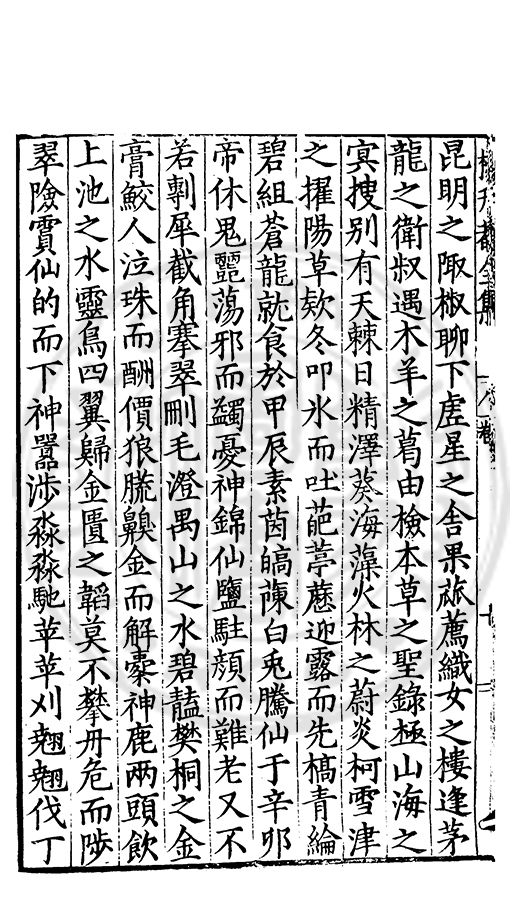 昆明之陬椒聊下虗星之舎果蓏薦織女之樓逢茅
龍之衛叔遇木羊之葛由檢本草之聖錄極山海之
㝠搜别有天棘日精澤葵海藻火林之蔚炎柯雪津
之擢陽草欵冬叩氷而吐葩葶藶迎露而先槁青綸
碧組蒼龍就食於甲辰素茵皜蔯白兎騰仙于辛夘
帝休鬼䰱蕩邪而蠲憂神錦仙鹽駐顔而難老又不
若剸犀截角搴翠刪毛澄禺山之水碧䤈樊桐之金
膏鮫人泣珠而酬價狼㬺齅金而解橐神鹿兩頭飲
上池之水靈鳥四翼歸金匱之韜莫不攀丹危而陟
翠險賓仙的而下神嚣涉淼淼馳苹苹刈翹翹伐丁